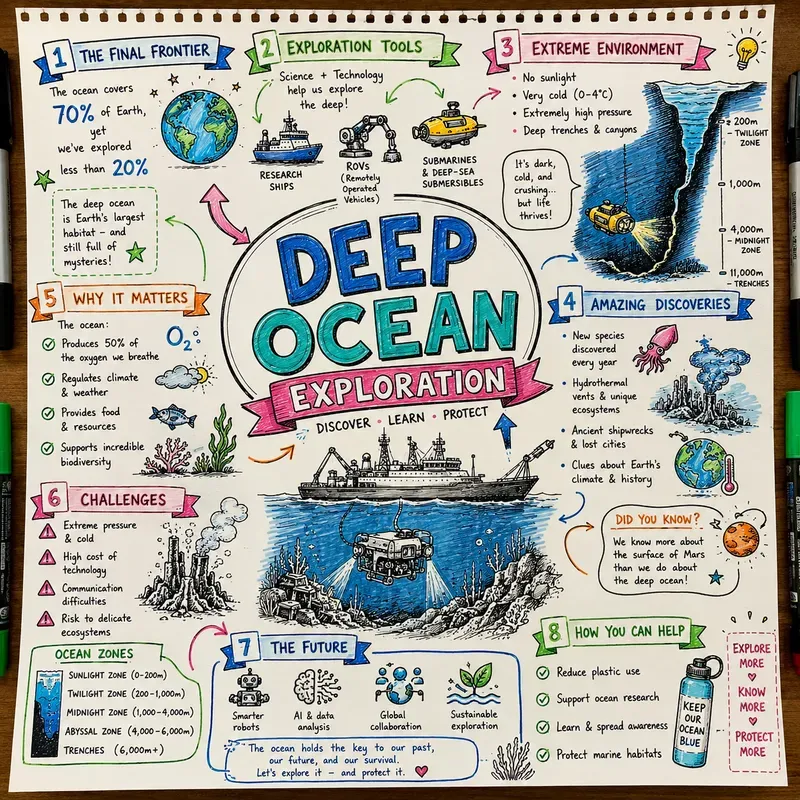 1 THE FINAL FRONTIER
The ocean covers
70% of Earth,
yet
we've explored
less than 20%
The deep ocean
is Earth's largest
habitat – and
still full of
mysteries!
2 EXPLORATION TOOLS
Science + Technology
help us explore
the deep!
RESEARCH
SHIPS
ROVs
(Remotely
Operated
Vehicles)
SUBMARINES
& DEEP-SEA
SUBMERSIBLES
3 EXTREME ENVIRONMENT
• No sunlight
• Very cold (0–4°C)
• Extremely high pressure
• Deep trenches & canyons
It's dark,
cold, and
crushing...
but life
thrives!
200m
– TWILIGHT
ZONE
1,000m
4,000m
– MIDNIGHT
ZONE
11,000m
– TRENCHES
DEEP
OCEAN
EXPLORATION
DISCOVER • LEARN • PROTECT
4 AMAZING DISCOVERIES
• New species
discovered
every year
• Hydrothermal
vents & unique
ecosystems
• Ancient shipwrecks
& lost cities
• Clues about Earth's
climate & history
DID YOU KNOW?
We know more about
the surface of Mars
than we do about
the deep ocean!
5 WHY IT MATTERS
The ocean:
Produces 50% of
the oxygen we breathe
O2
Regulates climate
& weather
Provides food
& resources
Supports incredible
biodiversity
6 CHALLENGES
Extreme pressure
& cold
High cost of
technology
Communication
difficulties
Risk to delicate
ecosystems
OCEAN ZONES
SUNLIGHT ZONE (0–200m)
TWILIGHT ZONE (200–1,000m)
MIDNIGHT ZONE (1,000–4,000m)
ABYSSAL ZONE (4,000–6,000m)
TRENCHES (6,000m+)
7 THE FUTURE
Smarter
robots
AI & data
analysis
Global
collaboration
Sustainable
exploration
The ocean holds the key to our past,
our future, and our survival.
Let's explore it – and protect it.
8 HOW YOU CAN HELP
Reduce plastic use
Support ocean research
Learn & spread awareness
Protect marine habitats
KEEP
OUR
OCEAN
BLUE
EXPLORE
MORE
KNOW
MORE
PROTECT
MORE